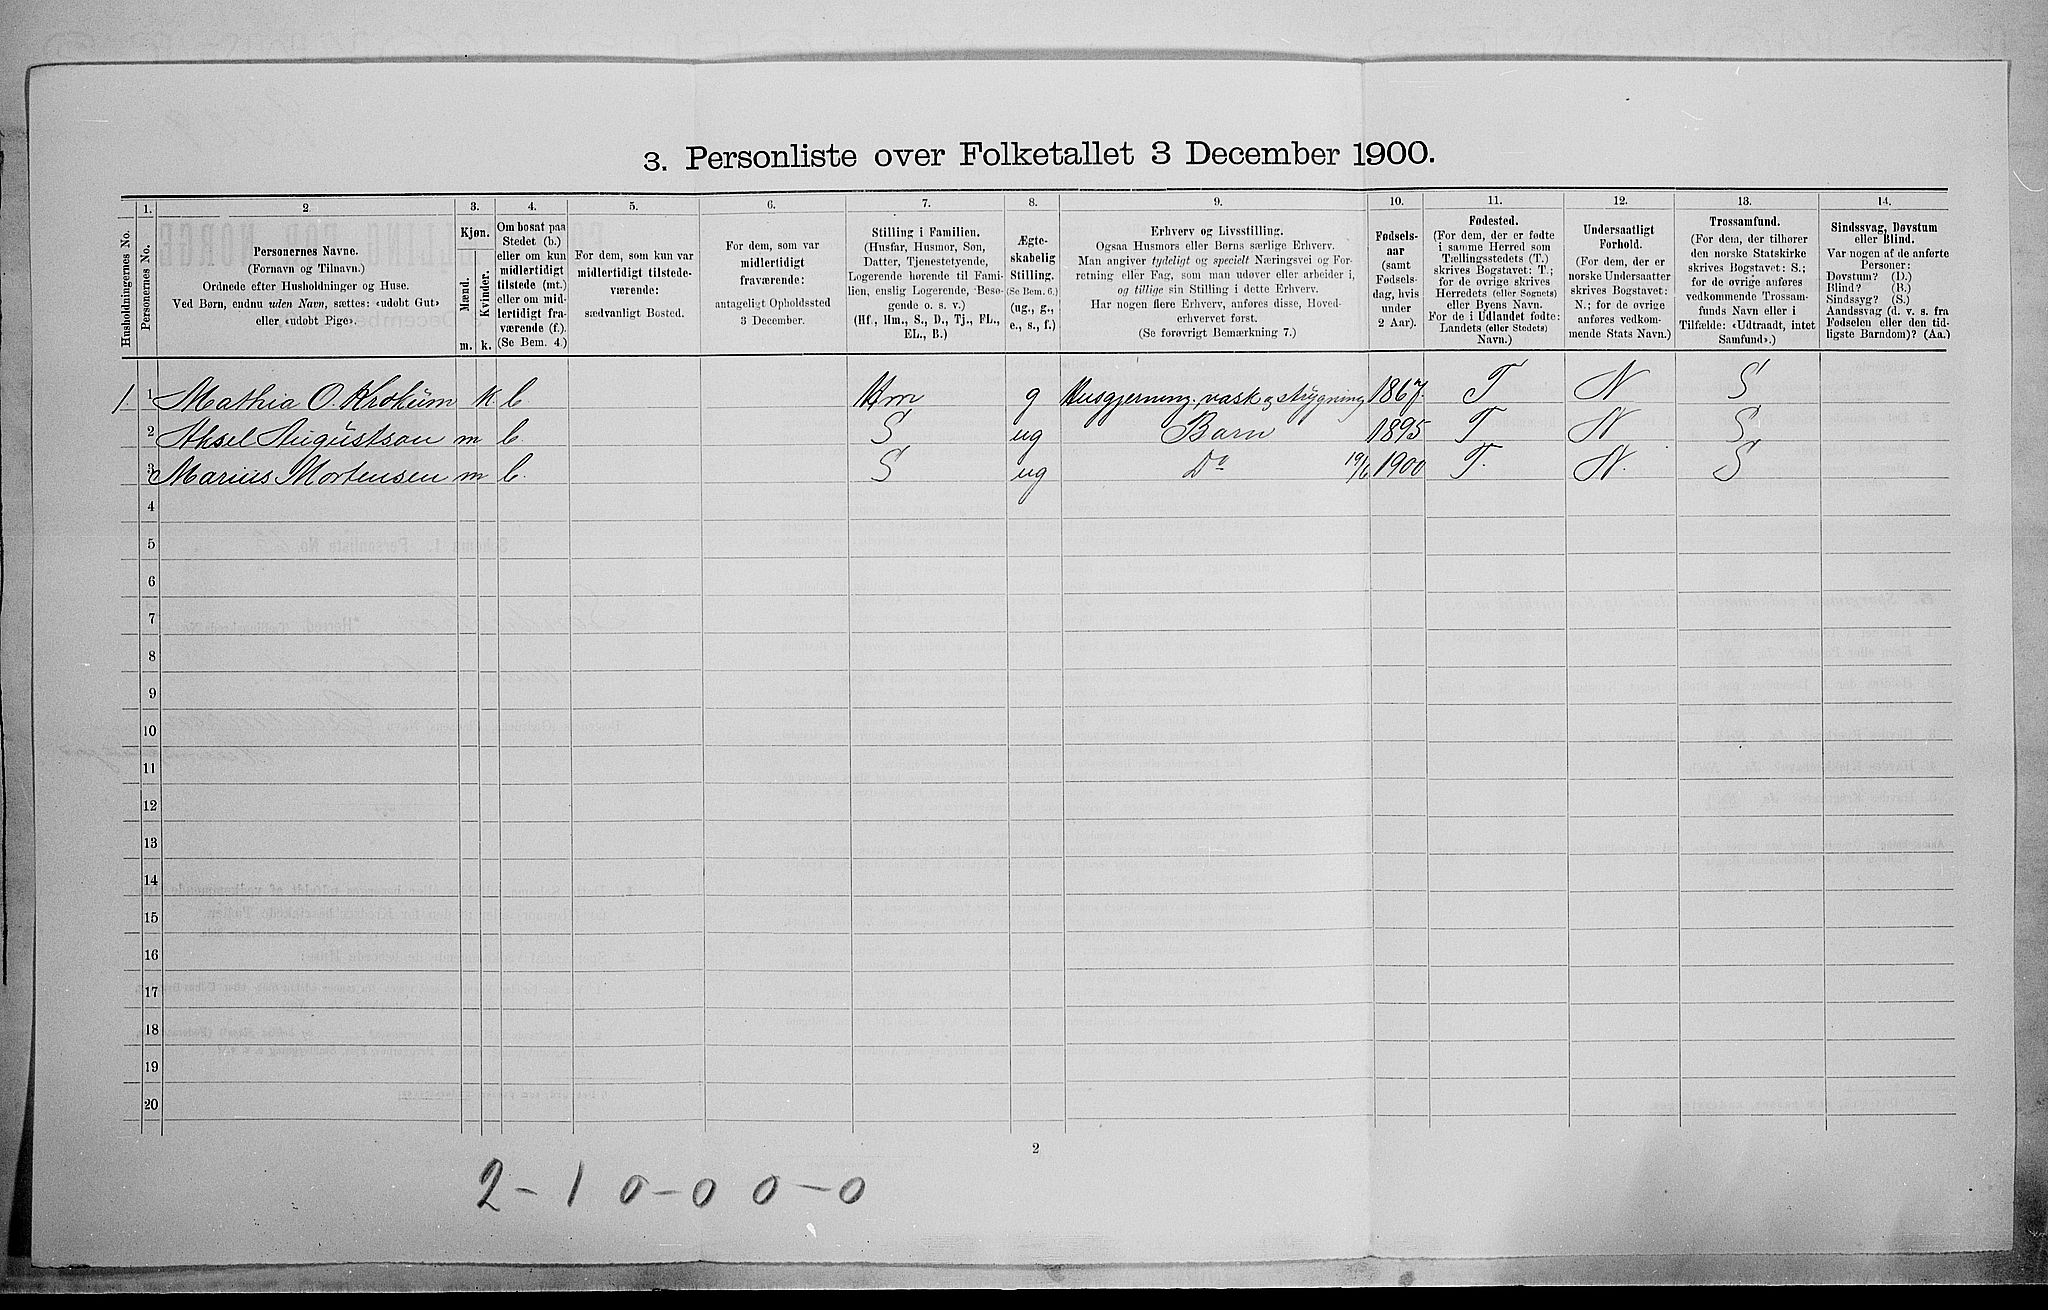 3. Personliste over Folketallet 3 December 1900.
1. 2. 3. 4. 5. 6. 7. 8. 9. 10. 11. 12. 13. 14.
Husholdningernes No.
Personernes No.
Personernes Navne.
(Fornavn og Tilnavn.)
Ordnede efter Husholdninger og Huse.
Ved Børn, endnu uden Navn, sættes: «udøbt Gut»
eller «udøbt Pige».
Kjøn.
Mænd.
Kvinder.
m. k.
Om bosat paa
Stedet (b.)
eller om kun
midlertidigt
tilstede (mt.)
eller om mid-
lertidigt fra-
værende (f.).
(Se Bem. 4.)
For dem, som kun var
midlertidigt tilstede-
værende:
sædvanligt Bosted.
For dem, som var
midlertidigt
fraværende:
antageligt Opholdssted
3 December.
Stilling i Familien.
(Husfar, Husmor, Søn,
Datter, Tjenestetyende,
Logerende hørende til Fami-
lien, enslig Logerende, Besø-
gende o. s. v.)
(Hf., Hm., S., D., Tj., FL.,
EL., B.)
Ægte-
skabelig
Stilling.
(Se Bem. 6.)
(ug., g.,
e., s., f.)
Erhverv og Livsstilling.
Ogsaa Husmors eller Børns særlige Erhverv.
Man angiver tydeligt og specielt Næringsvei og For-
retning eller Fag, som man udøver eller arbeider i,
og tillige sin Stilling i dette Erhverv.
Har nogen flere Erhverv, anføres disse, Hoved-
erhvervet først.
(Se forøvrigt Bemærkning 7.)
Fødsels-
aar
(samt
Fødsels-
dag, hvis
under
2 Aar).
Fødested.
(For dem, der er fødte
i samme Herred som
Tællingsstedets (T.)
skrives Bogstavet: T.;
for de øvrige skrives
Herredets (eller Sognets)
eller Byens Navn.
For de i Udlandet fødte:
Landets (eller Stedets)
Navn.)
Undersaatligt
Forhold.
(For dem, der er
norske Undersaatter
skrives Bogstavet:
N.; for de øvrige
anføres vedkom-
mende Stats Navn.)
Trossamfund.
(For dem, der tilhører
den norske Statskirke
skrives Bogstavet: S.;
for de øvrige anføres
vedkommende Trossam-
funds Navn eller i
Tilfælde: «Udtraadt, intet
Samfund».)
Sindssvag, Døvstum
eller Blind.
Var nogen af de anførte
Personer:
Døvstum? (D.)
Blind? (B.)
Sindssyg? (S.)
Aandssvag (d. v. s. fra
Fødselen eller den tid-
ligste Barndom)? (Aa.)
1. 1 Mathia O. Krokum k b Hm g Husgjerning, vask og strygning 1867. T N S
2 Aksel Augustson m b. S ug Barn 1895 T N S
3 Marius Mortensen m b. S ug Do 19/6 1900 T. N. S
4
5
6
7
8
9
10
11
12
13
14
15
16
17
18
19
20
2
2 - 1 0 - 0 0 - 0